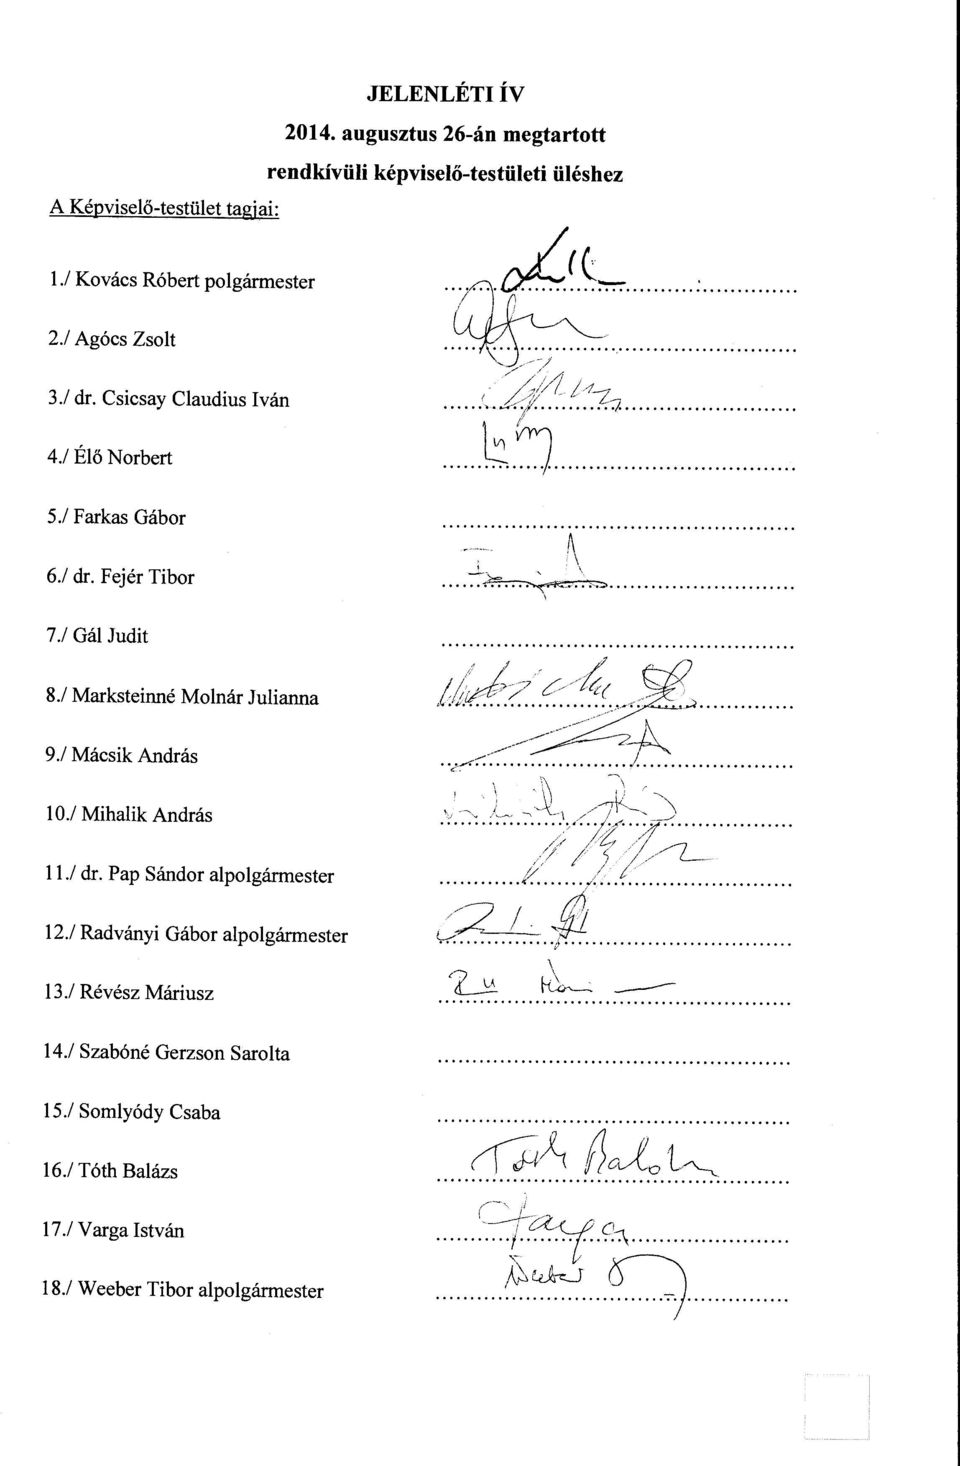 JELENLÉTI ÍV
2014. augusztus 26-án megtartott
rendkívüli képviselő-testületi üléshez
A Képviselő-testület tagjai:
1./ Kovács Róbert polgármester
2./ Agócs Zsolt
3./ dr. Csicsay Claudius Iván
4./ Élő Norbert
5./ Farkas Gábor
6./ dr. Fejér Tibor
7./ Gál Judit
8./ Marksteinné Molnár Julianna
9./ Mácsik András
10./ Mihalik András
11./ dr. Pap Sándor alpolgármester
12./ Radványi Gábor alpolgármester
13./ Révész Máriusz
14./ Szabóné Gerzson Sarolta
15./ Somlyódy Csaba
16./ Tóth Balázs Tóth Balázs
17./ Varga István Varga
18./ Weeber Tibor alpolgármester Weeber